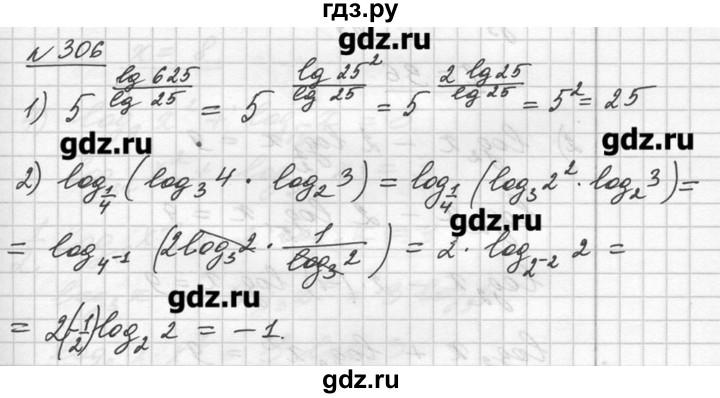 гдз.ру
№ 306
1) 5^(lg 625 / lg 25) = 5^(lg 25² / lg 25) = 5^(2 lg 25 / lg 25) = 5² = 25
gdz.ru gdz.ru gdz.ru gdz.ru
2) log_(1/4) (log₃ 4 · log₂ 3) = log_(1/4) (log₃ 2² · log₂ 3) =
gdz.ru
= log_(4⁻¹) (2 log₃ 2 · 1/(log₃ 2)) = 2 · log_(2⁻²) 2 =
gdz.ru
= 2(-1/2) log₂ 2 = -1.
gdz.ru